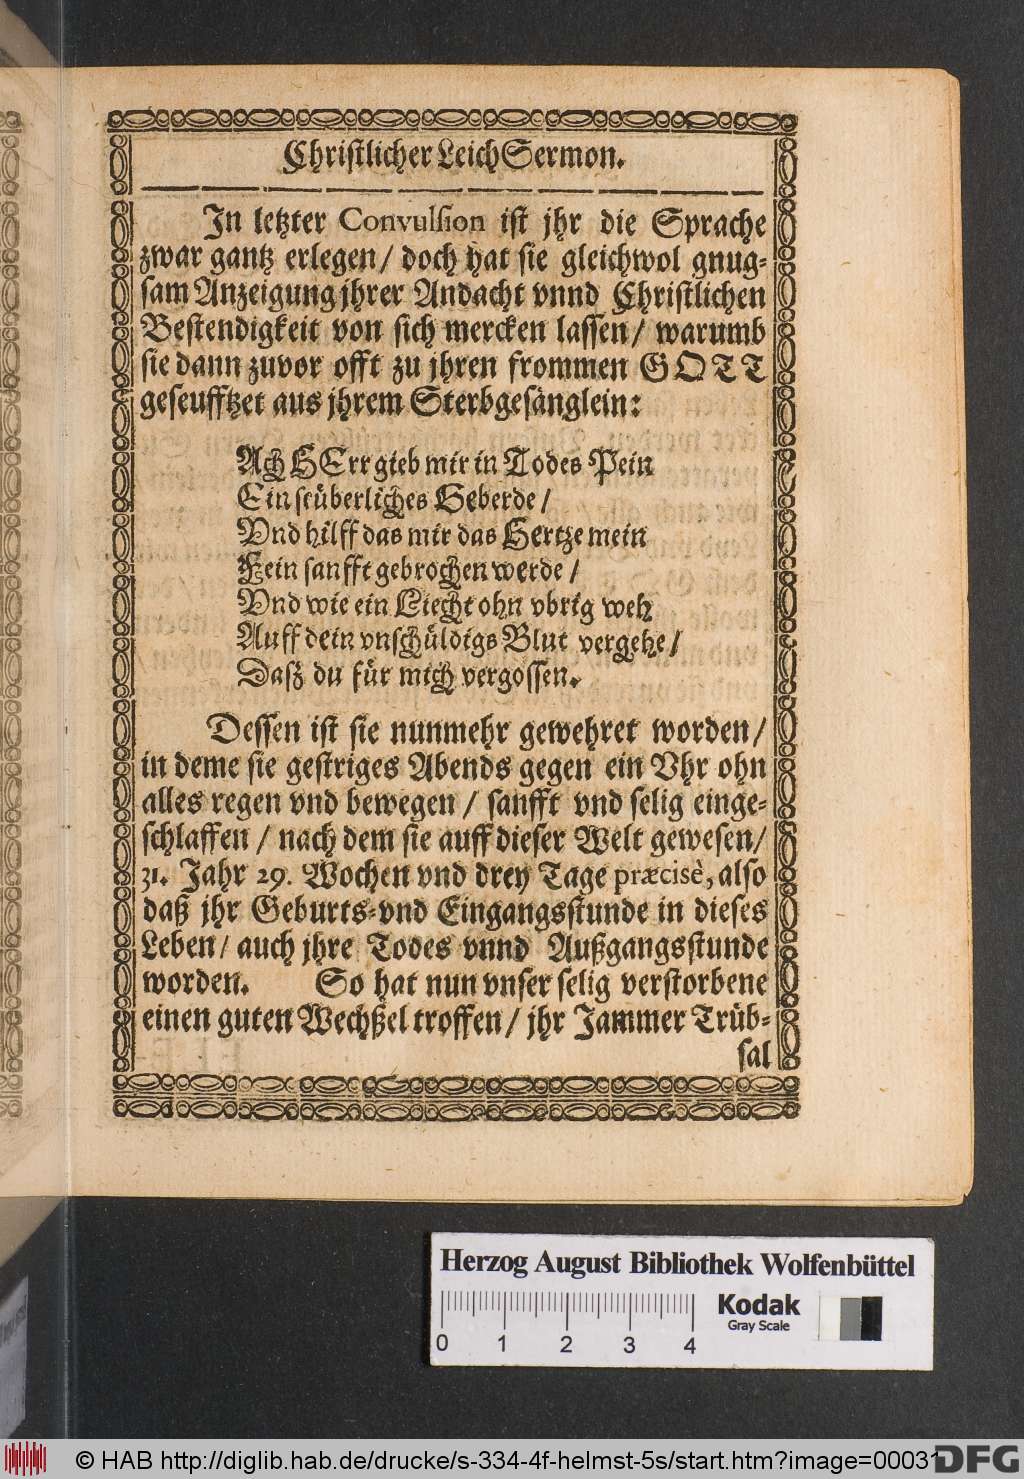 Christlicher Leich Sermon.
In letzter Convulsion ist jhr die Sprache
zwar gantz erlegen / doch hat sie gleichwol gnug-
sam Anzeigung jhrer Andacht vnnd Christlichen
Bestendigkeit von sich mercken lassen / warumb
sie dann zuvor offt zu jhren frommen GOTT
geseufftzet aus jhrem Sterbgesänglein:
Ach HErr gieb mir in Todes Pein
Ein seüberliches Geberde /
Vnd hilff das mir das Hertze mein
Fein sanfft gebrochen werde /
Vnd wie ein Liecht ohn vbrig weh
Auff dein vnschüldigs Blut vergehe /
Dasz du für mich vergossen.
Dessen ist sie nunmehr gewehret worden /
in deme sie gestriges Abends gegen ein Vhr ohn
alles regen vnd bewegen / sanfft vnd selig einge-
schlaffen / nach dem sie auff dieser Welt gewesen /
31. Jahr 29. Wochen vnd drey Tage præcisè, also
daß jhr Geburts-vnd Eingangsstunde in dieses
Leben / auch jhre Todes vnnd Außgangsstunde
worden. So hat nun vnser selig verstorbene
einen guten Wechßel troffen / jhr Jammer Trüb-
sal
Herzog August Bibliothek Wolfenbüttel
Kodak
Gray Scale
0 1 2 3 4
© HAB http://diglib.hab.de/drucke/s-334-4f-helmst-5s/start.htm?image=00031
DFG